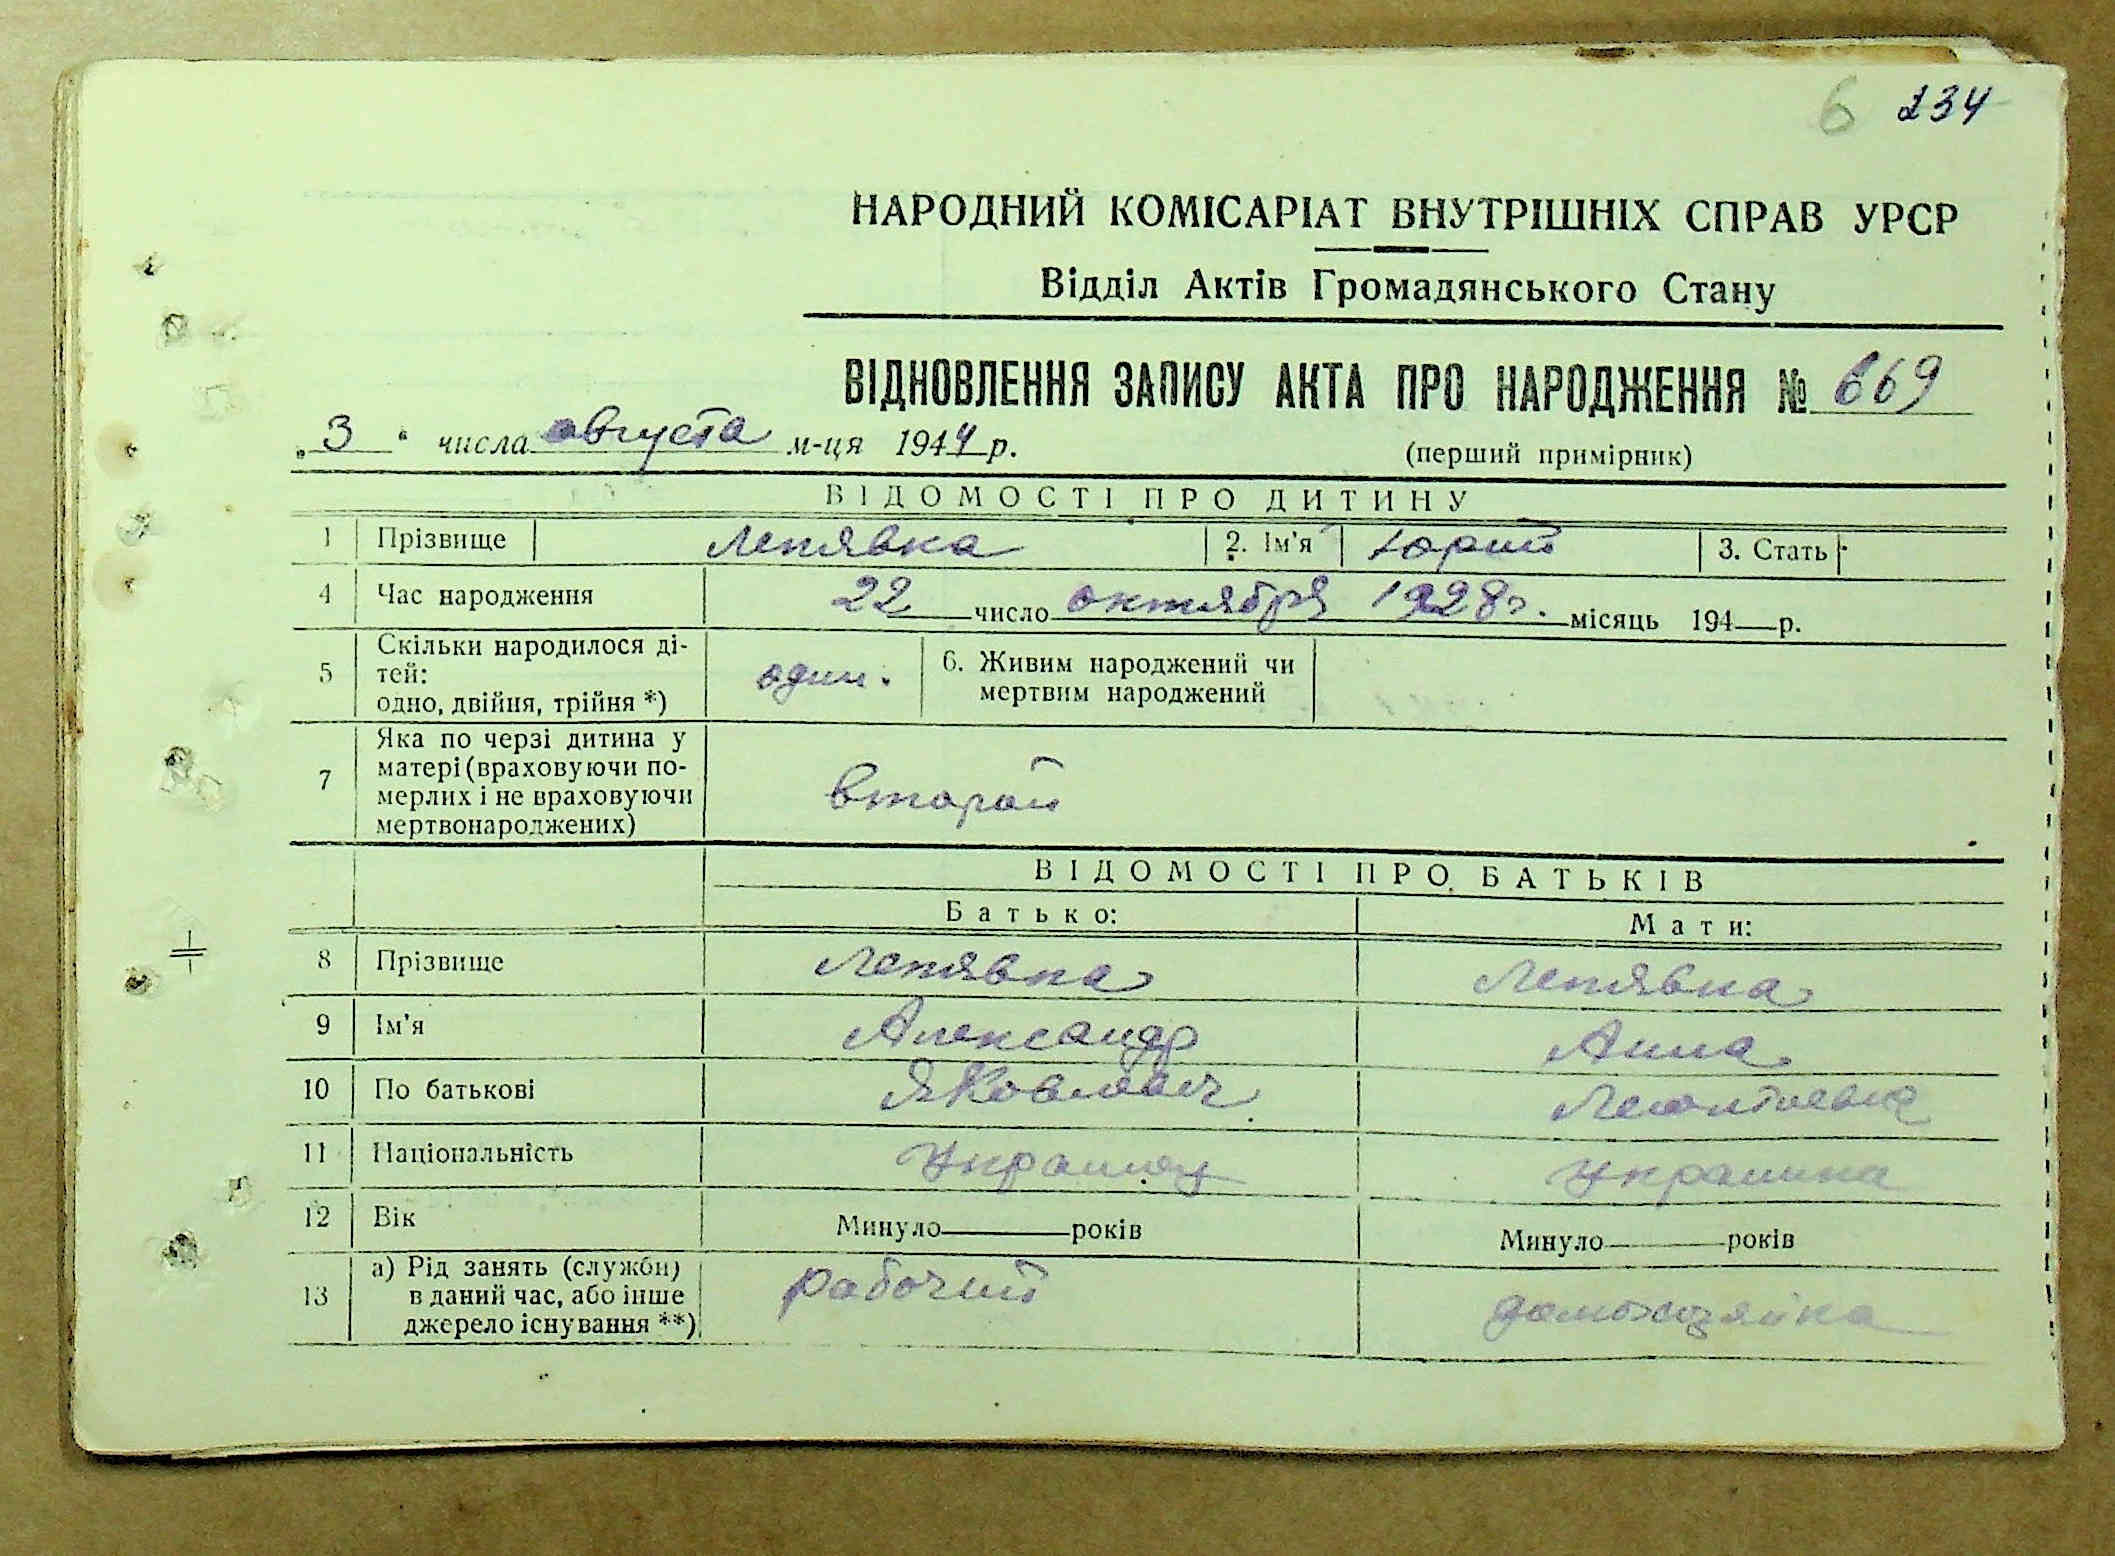 6 234
НАРОДНИЙ КОМІСАРІАТ ВНУТРІШНІХ СПРАВ УРСР
Відділ Актів Громадянського Стану
ВІДНОВЛЕННЯ ЗАПИСУ АКТА ПРО НАРОДЖЕННЯ № 669
„ 3 " числа августа м-ця 1944 р.
(перший примірник)
ВІДОМОСТІ ПРО ДИТИНУ
1 Прізвище Лепявка 2. Ім'я Юрий 3. Стать
4 Час народження 22 число октября 1928г. місяць 194 р.
5 Скільки народилося ді-
тей:
одно, двійня, трійня *) один.
6. Живим народжений чи
мертвим народжений
7 Яка по черзі дитина у
матері (враховуючи по-
мерлих і не враховуючи
мертвонароджених) второй
ВІДОМОСТІ ПРО БАТЬКІВ
Батько: Мати:
8 Прізвище Лепявка Лепявка
9 Ім'я Александр Анна
10 По батькові Яковлевич Леонтьевна
11 Національність Украинец Украинка
12 Вік Минуло років Минуло років
13 а) Рід занять (служби)
в даний час, або інше
джерело існування **) рабочий домохозяйка